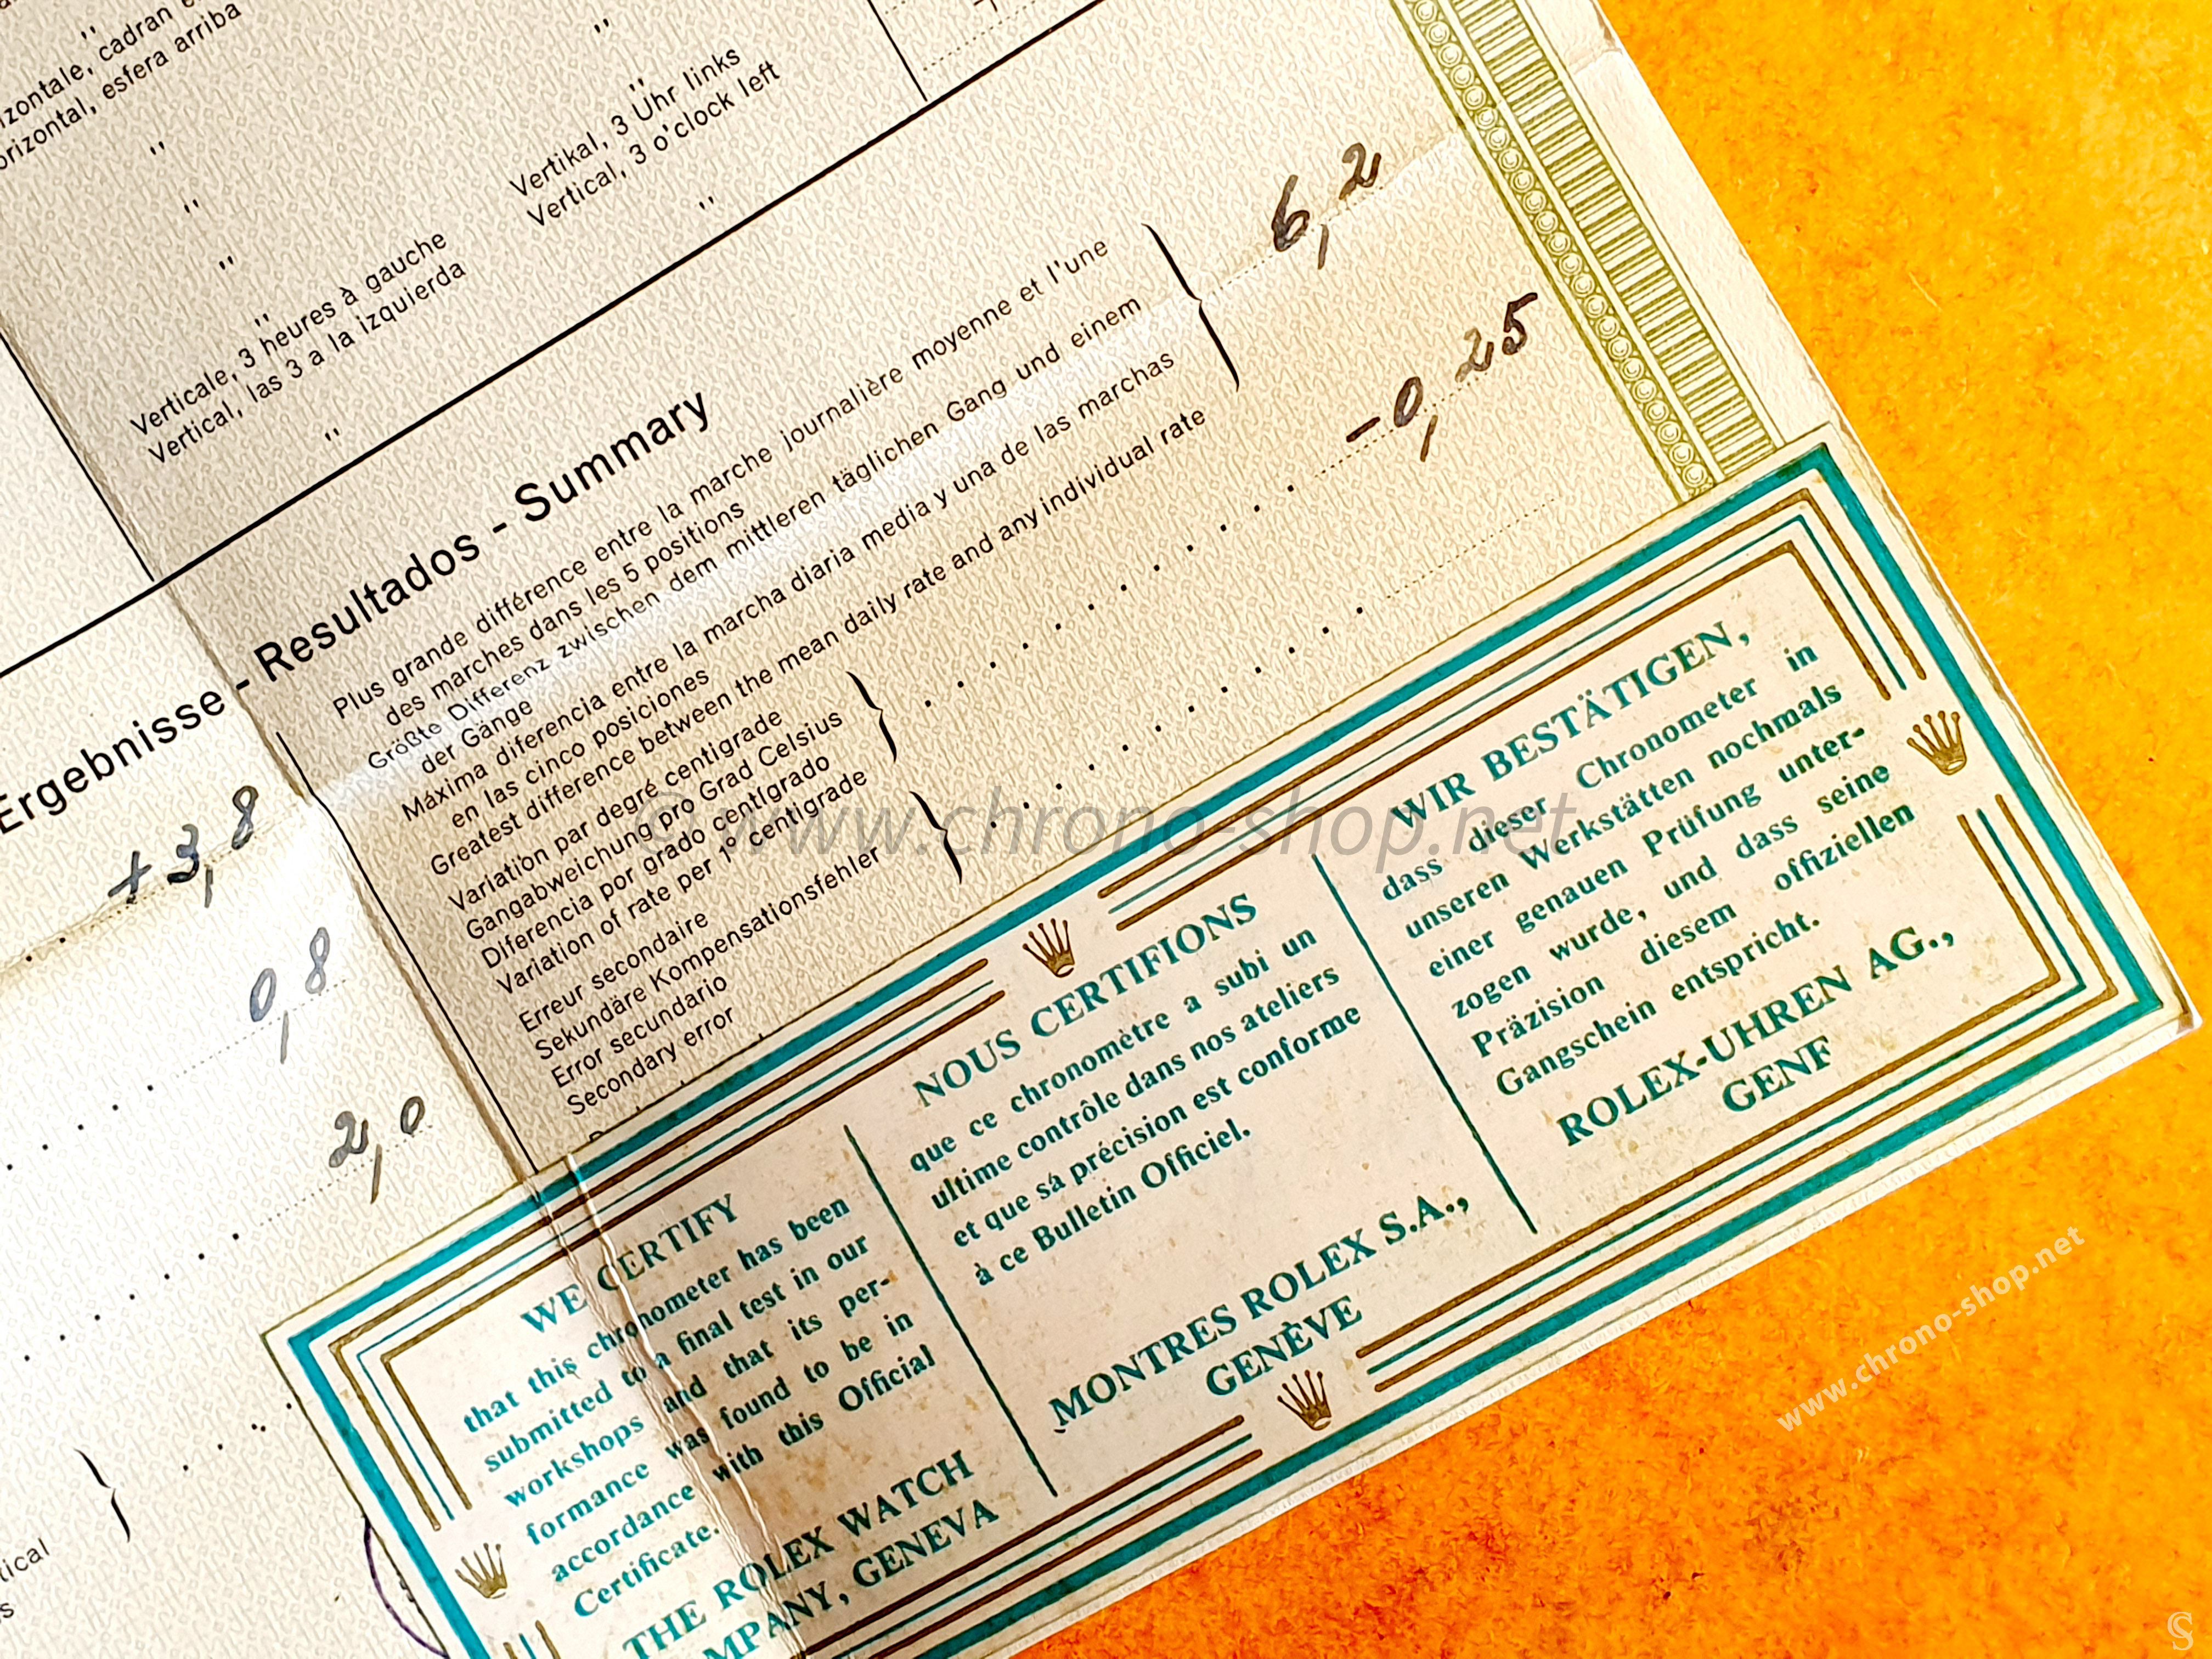 "
horizontal, esfera arriba
"
"
"
"
Verticale, 3 heures à gauche
Vertical, las 3 a la izquierda
"
"
"
Vertikal, 3 Uhr links
Vertical, 3 o'clock left
"
Ergebnisse - Resultados - Summary
Plus grande différence entre la marche journalière moyenne et l'une
des marches dans les 5 positions
Größte Differenz zwischen dem mittleren täglichen Gang und einem
der Gänge
Máxima diferencia entre la marcha diaria media y una de las marchas
en las cinco posiciones
Greatest difference between the mean daily rate and any individual rate
6,2
Variation par degré centigrade
Gangabweichung pro Grad Celsius
Diferencia por grado centigrado
Variation of rate per 1° centigrade
-0,25
Erreur secondaire
Sekundäre Kompensationsfehler
Error secundario
Secondary error
+3,8
0,8
2,0
© www.chrono-shop.net
WE CERTIFY
that this chronometer has been
submitted to a final test in our
workshops and that its per-
formance was found to be in
accordance with this Official
Certificate.
THE ROLEX WATCH
MPANY, GENEVA
NOUS CERTIFIONS
que ce chronomètre a subi un
ultime contrôle dans nos ateliers
et que sa précision est conforme
à ce Bulletin Officiel.
MONTRES ROLEX S.A.,
GENÈVE
WIR BESTÄTIGEN,
dass dieser Chronometer in
unseren Werkstätten nochmals
einer genauen Prüfung unter-
zogen wurde, und dass seine
Präzision diesem offiziellen
Gangschein entspricht.
ROLEX-UHREN AG.,
GENF
www.chrono-shop.net